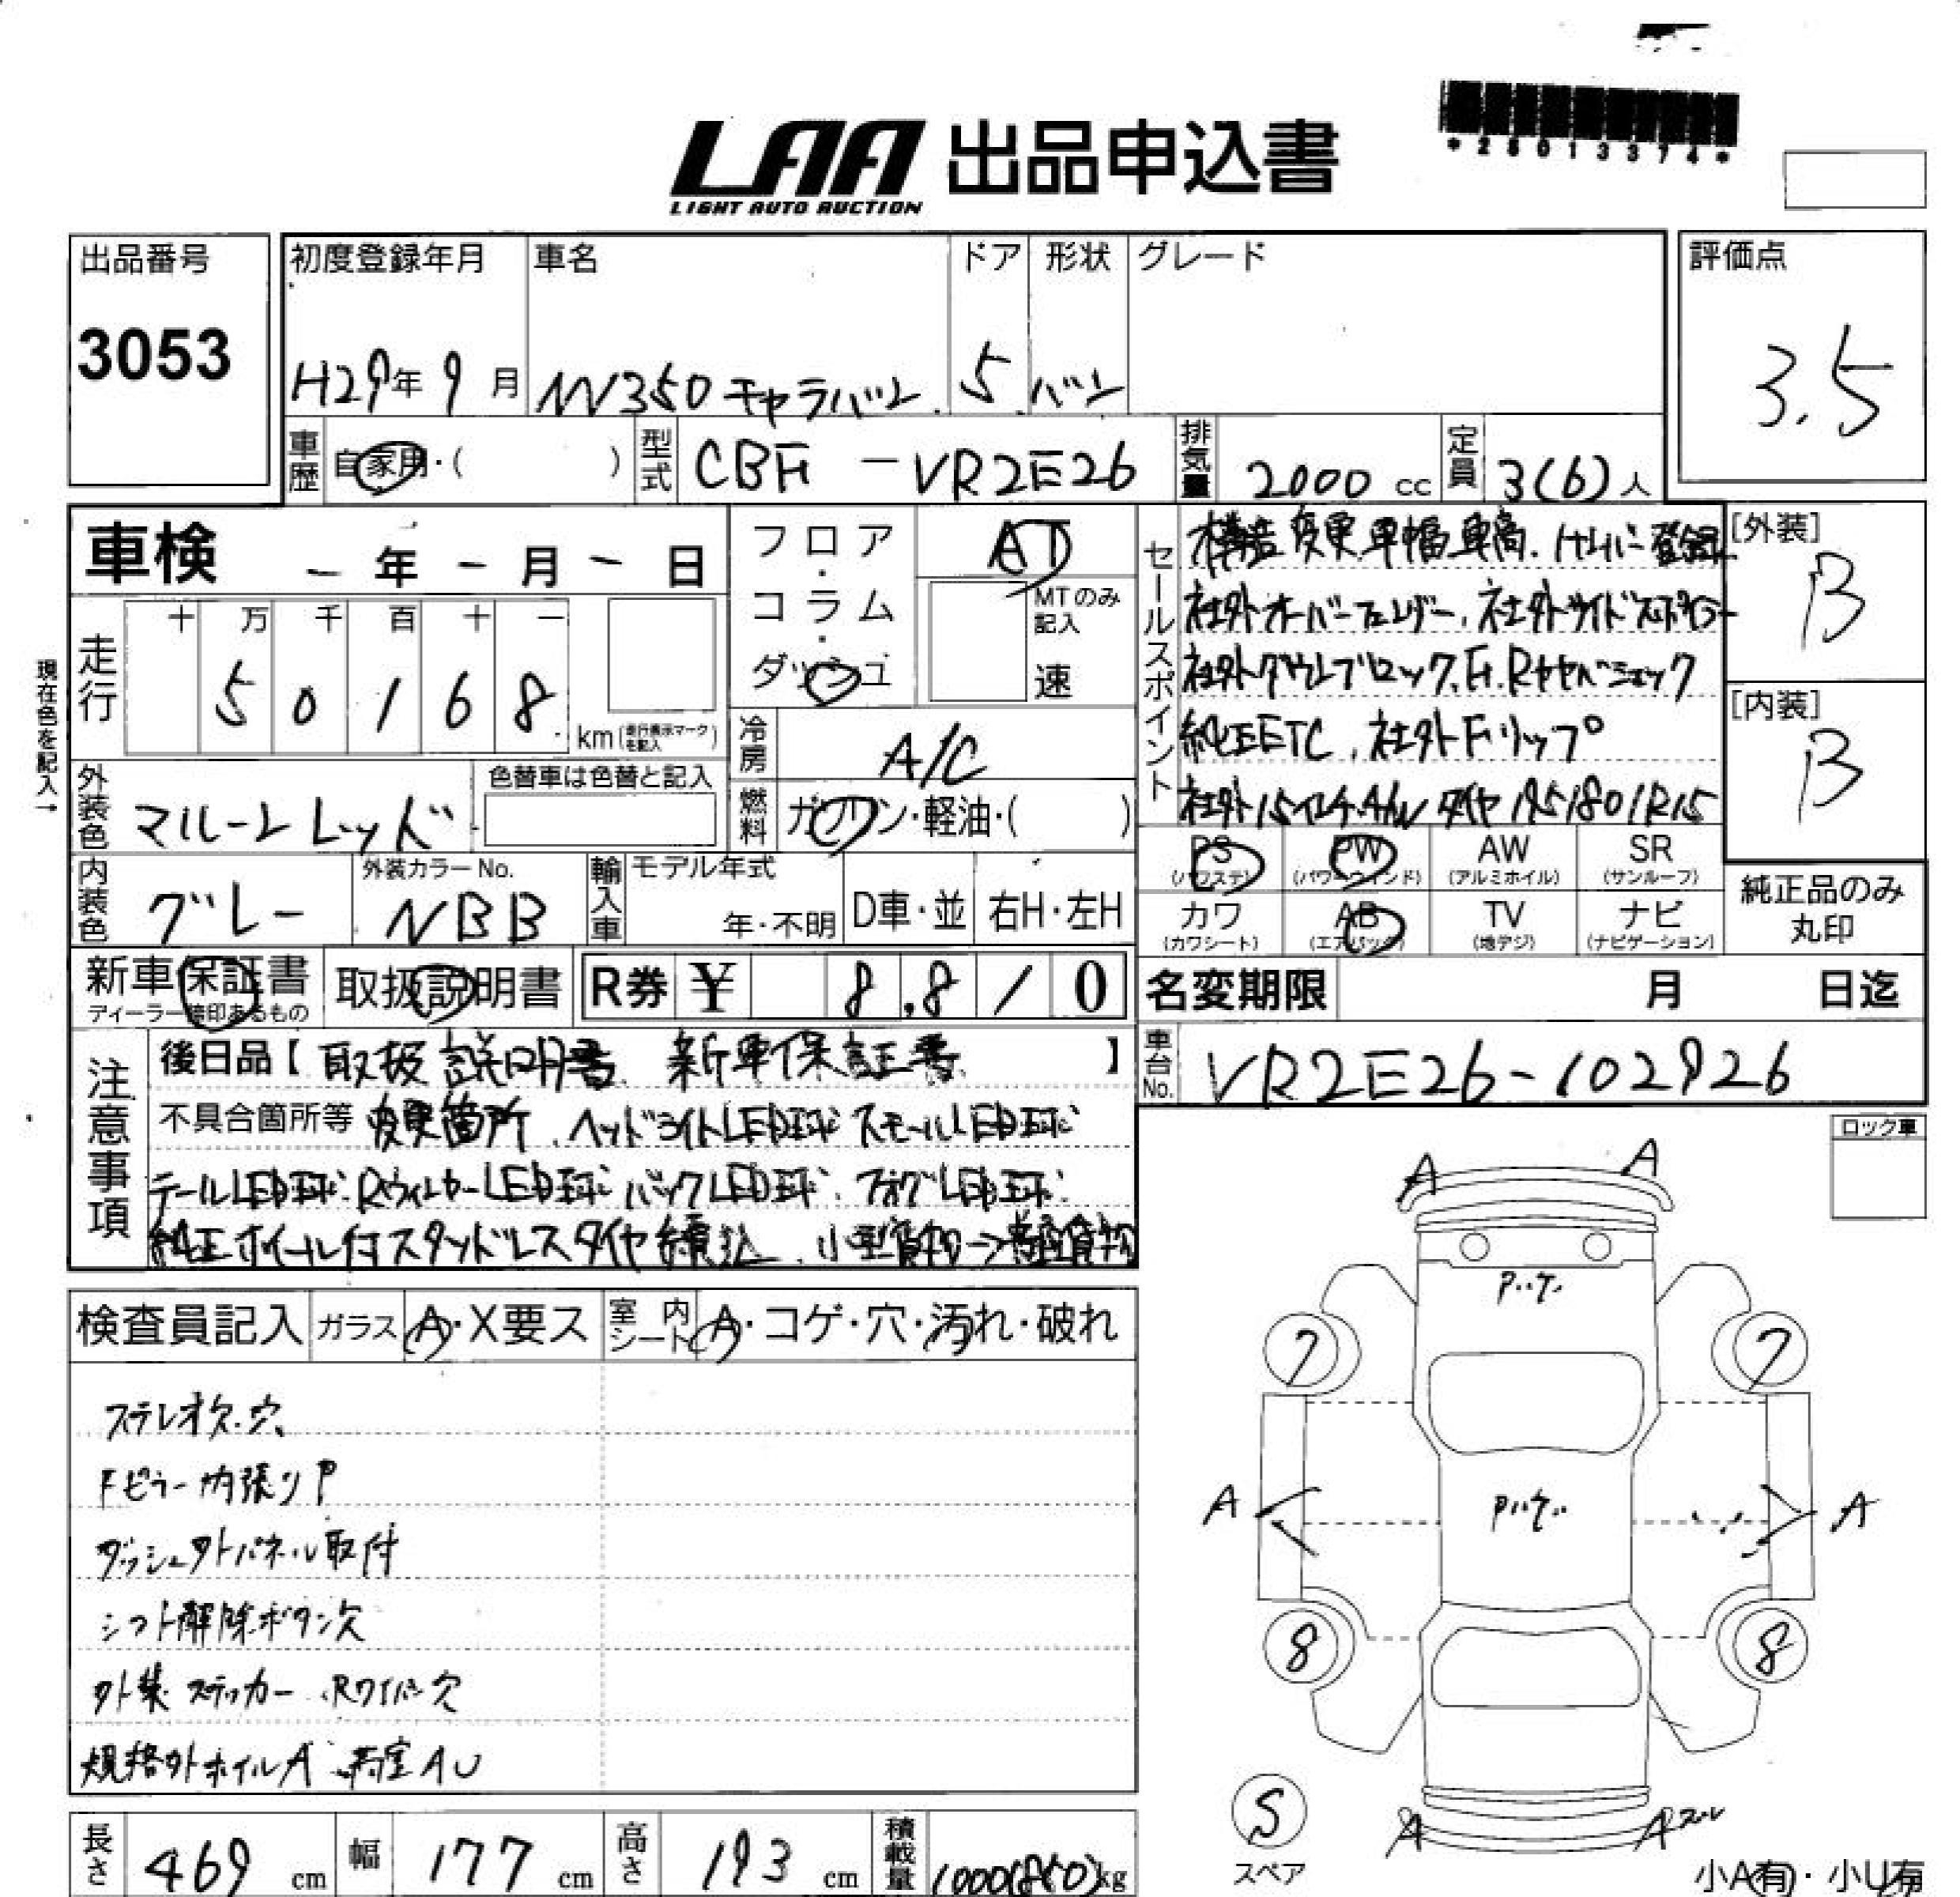 LAA 出品申込書
LIGHT AUTO AUCTION
*25013374*
出品番号
3053
初度登録年月 車名 ドア 形状 グレード
H29年 9月 NV350 キャラバン 5 バン
評価点
3.5
車歴 自家用・( ) 型式 CBF - VR2E26 排気量 2000 cc 定員 3(6)人
車検 - 年 - 月 - 日
フロア・コラム・ダッシュ
AT
MTのみ記入
速
セールスポイント
構造変更 車幅 車高
社外オーバーフェンダー、社外サイドスポイラー
社外ダウンブロック、F.R
純正ETC、社外Fリップ
社外15インチA/W タイヤ195/80/R15
[外装]
B
[内装]
B
走行 十 万 千 百 十 一
5 0 1 6 8 km (走行表示マークを記入)
現在色を記入→
冷房 A/C
外装色 マルーンレッド 色替車は色替と記入
燃料 ガソリン・軽油・( )
PS (パワステ) PW (パワーウインド) AW (アルミホイル) SR (サンルーフ)
カワ (カワシート) AB (エアバック) TV (地デジ) ナビ (ナビゲーション)
純正品のみ
丸印
内装色 グレー 外装カラーNo. NBB 輸入車 モデル年式 年・不明 D車・並 右H・左H
新車保証書 ディーラー捺印あるもの 取扱説明書 R券 ¥ 8,8/0
名変期限 月 日迄
車台No. VR2E26-102926
注意事項
後日品【取扱説明書 新車保証書】
不具合箇所等 変更箇所、ヘッドライトLED球 スモールLED球
テールLED球 RウィンカーLED球 バックLED球 フォグLED球
純正ホイール付スタッドレスタイヤ積込、小型貨物→普通貨物
ロック車
検査員記入 ガラス A・X要ス 室内シート A・コゲ・穴・汚れ・破れ
ステレオ欠.穴
Fピラー内張りP
ダッシュ外パネル取付
シフト解除ボタン欠
外装 ステッカー、Rワイパー欠
規格外ホイルA、荷室AU
A A
7 7
A A
8 8
S
スペア
A A
小A有・小U有
長さ 469 cm 幅 177 cm 高さ 193 cm 積載量 1000(850)kg